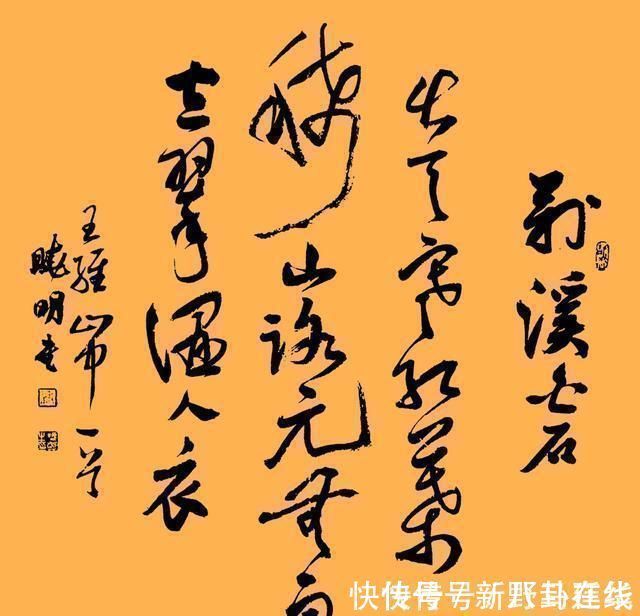 荆溪白石
出天寒红葉
稀山路元無雨
空翠湿人衣
王維山中一首
曉明书
快传号/新野在线